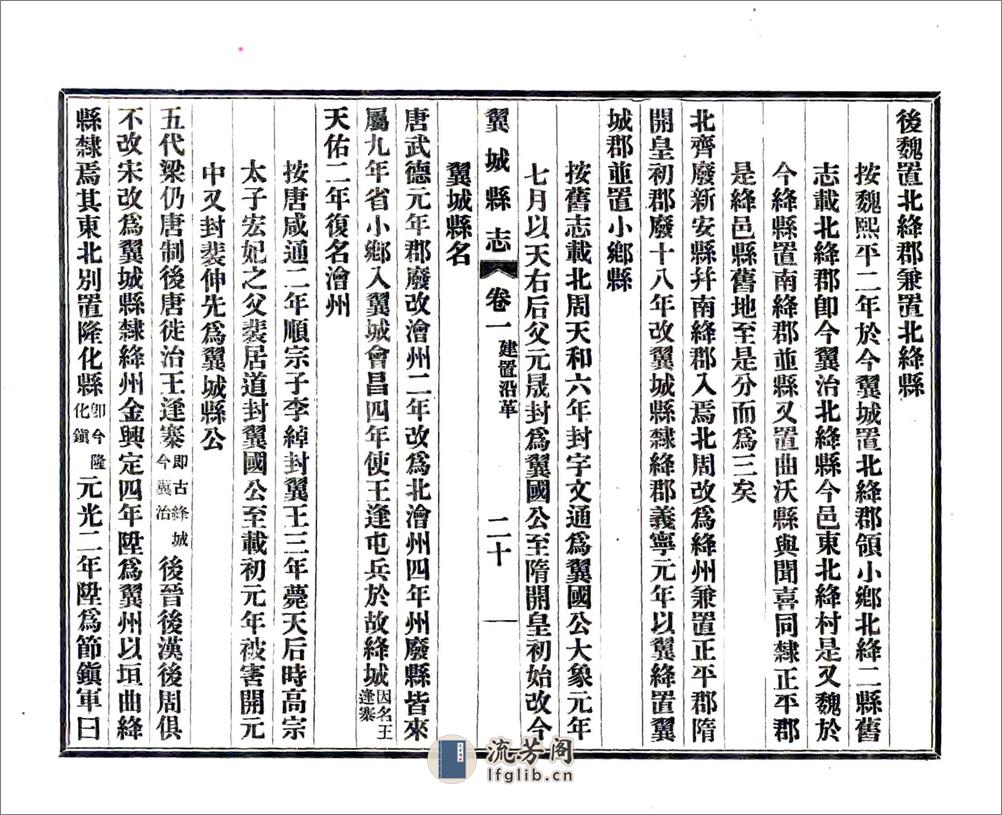 後魏置北絳郡兼置北絳縣
按魏熙平二年於今翼城置北絳郡領小鄉北絳二縣舊
志載北絳郡卽今翼治北絳縣今邑東北絳村是又魏於
今絳縣置南絳郡並縣又置曲沃縣與聞喜同隸正平郡
是絳邑縣舊地至是分而爲三矣
北齊廢新安縣幷南絳郡入焉北周改爲絳州兼置正平郡隋
開皇初郡廢十八年改翼城縣隸絳郡義寧元年以翼絳置翼
城郡並置小鄉縣
按舊志載北周天和六年封宇文通爲翼國公大象元年
七月以天右后父元晟封爲翼國公至隋開皇初始改今
翼城縣志 卷一 建置沿革 二十
翼城縣名
唐武德元年郡廢改澮州二年改爲北澮州四年州廢縣皆來
屬九年省小鄉入翼城會昌四年使王逢屯兵於故絳城因名王逢寨
天佑二年復名澮州
按唐咸通二年順宗子李綽封翼王三年薨天后時高宗
太子宏妃之父裴居道封翼國公至載初元年被害開元
中又封裴伷先爲翼城縣公
五代梁仍唐制後唐徙治王逢寨即古絳城今翼治後晉後漢後周俱
不改宋改爲翼城縣隸絳州金興定四年陞爲翼州以垣曲絳
縣隸焉其東北別置隆化縣卽今隆化鎭元光二年陞爲節鎭軍曰
流芳阁
lfglib.cn